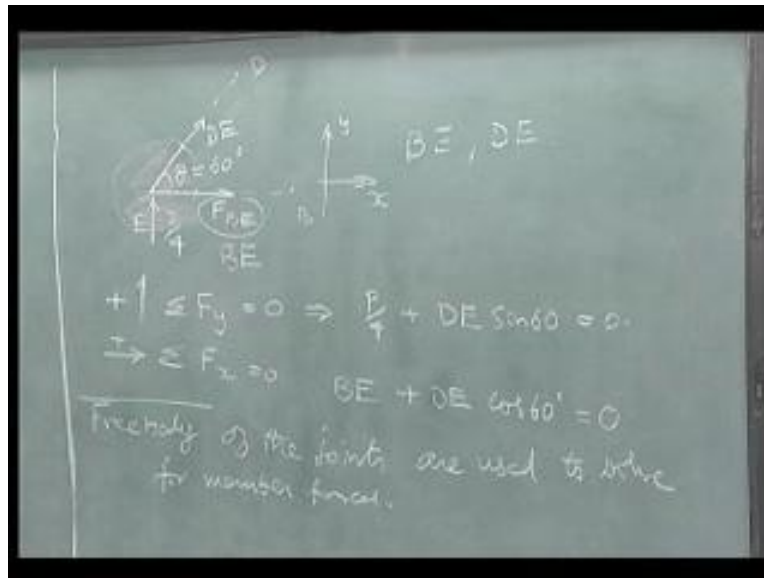 D
DE
θ = 60°
y
BE, DE
E
P/4
F_BE
B
x
BE
+↑ Σ F_y = 0 ⇒ P/4 + DE Sin60 = 0.
+→ Σ F_x = 0 BE + DE cos60° = 0
Freebody of the joints are used to solve
for member forces.